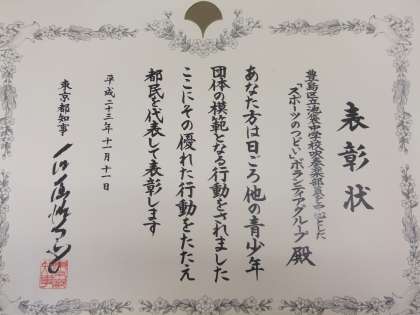 表彰状
豊島区立池袋中学校吹奏楽部員を中心とした
「スポーツのつどい」ボランティアグループ 殿
あなた方は日ごろ他の青少年
団体の模範となる行動をされました
ここにその優れた行動をたたえ
都民を代表して表彰します
平成二十三年十一月十一日
東京都知事